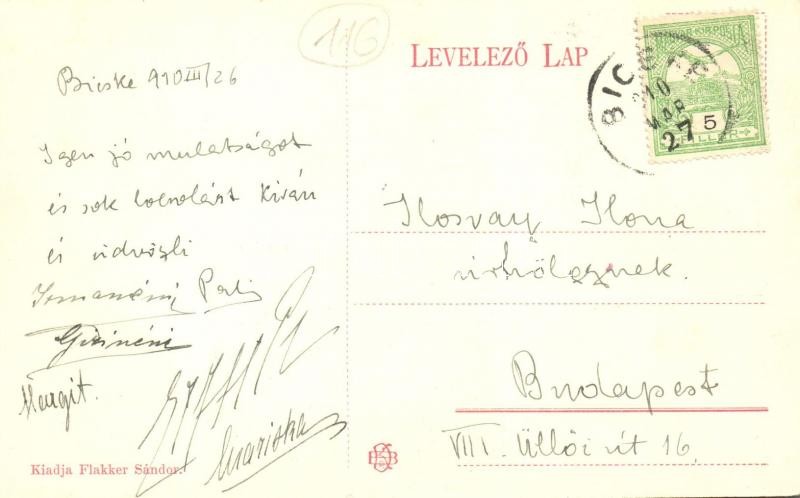 116
LEVELEZŐ LAP
MAGYAR KIR. POSTA
5
FILLÉR
BICSKE
910 MAR 27
Bicske 910 III/26
Igen jó mulatságot
és sok locsolást kíván
és üdvözli
Gizi néni
Margit.
Mariska
Ilosvay Ilona
úrhölgynek.
Budapest
VIII. Üllői út 16.
Kiadja Flakker Sándor.